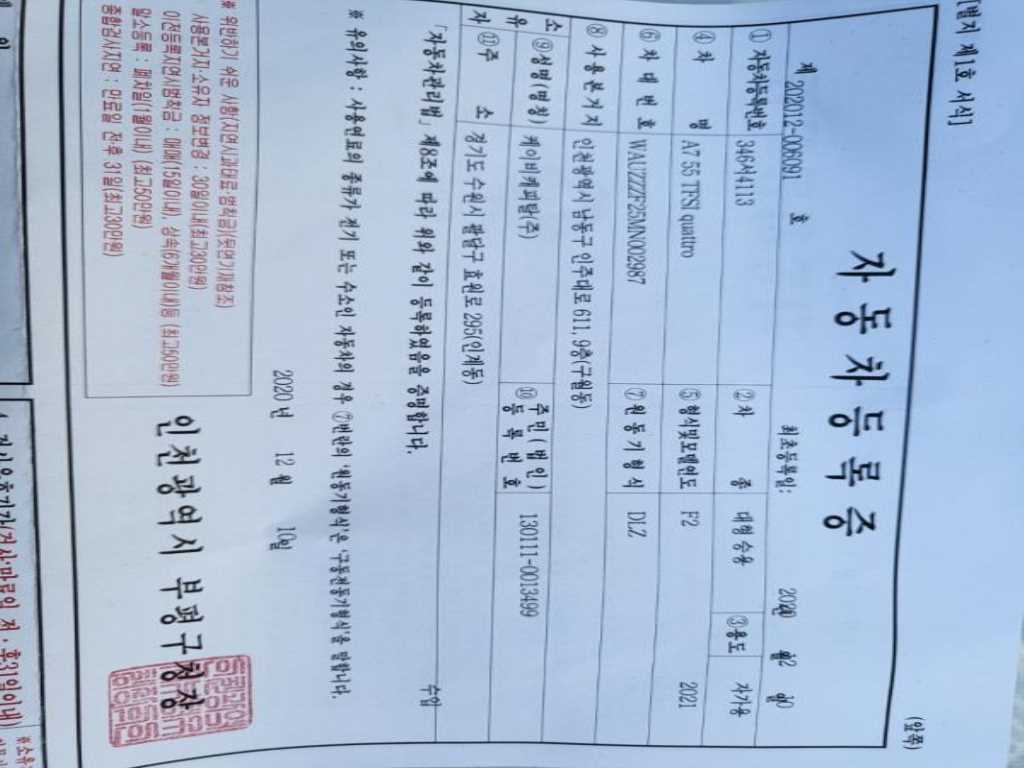 [별지 제1호 서식]
(앞쪽)
자동차등록증
제 202012-006091 호 최초등록일: 2020년 12월 10일
① 자동차등록번호 346서4113 ② 차 종 대형 승용 ③용도 자가용
④ 차 명 A7 55 TFSI quattro ⑤ 형식및모델연도 F2 2021
⑥ 차 대 번 호 WAUZZZF25MN002987 ⑦ 원 동 기 형 식 DLZ
⑧ 사 용 본 거 지 인천광역시 남동구 인주대로 611, 9층(구월동)
소유자 ⑨성명(명칭) 케이비캐피탈(주) ⑩ 주민(법인)등록번호 130111-0013499
⑪주 소 경기도 수원시 팔달구 효원로 295(인계동)
「자동차관리법」 제8조에 따라 위와 같이 등록하였음을 증명합니다.
수입
※ 유의사항 : 사용연료의 종류가 전기 또는 수소인 자동차의 경우 ⑦번란의 '원동기형식'은 '구동전동기형식'을 말합니다.
2020년 12월 10일
※ 위반하기 쉬운 사항(지연시과태료·범칙금)(뒷면기재참조)
사용본거지·소유자 정보변경 : 30일이내(최고30만원)
이전등록지연범칙금 : 매매(15일이내), 상속(6개월이내)등 (최고50만원)
말소등록 : 폐차일(1월이내) (최고50만원)
종합검사지연 : 만료일 전후 31일(최고30만원)
인천광역시 부평구청장